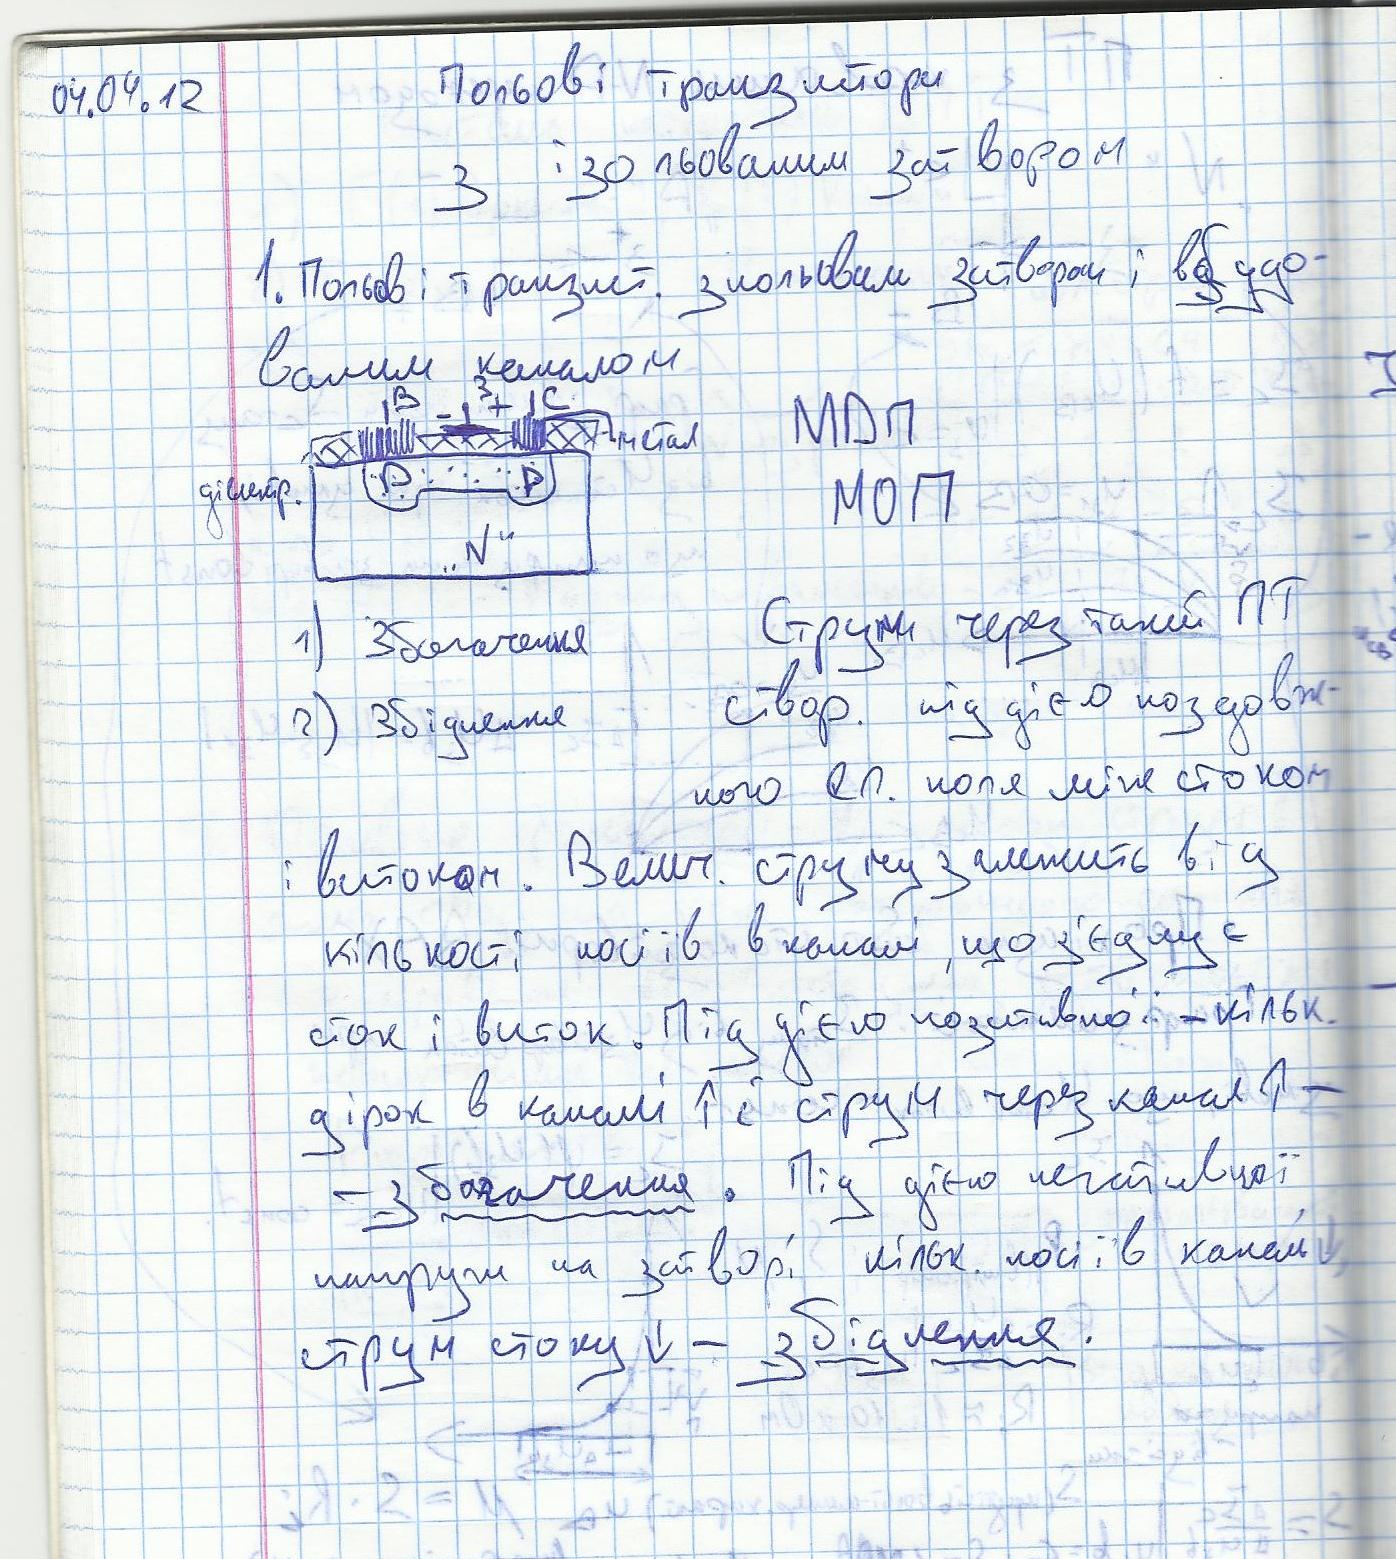 04.04.12
Польові транзистори
з ізольованим затвором
1. Польові транзист. з ізольован затвором і вбудо-
ваним каналом
В - З + С
метал
МДП
діелектр.
P P
МОП
„N“
1) Збагачення
Струм через такий ПТ
2) Збіднення
створ. під дією поздовж-
нього ел. поля між стоком
і витоком. Велич. струму залежить від
кількості носіїв в каналі, що з'єднує
сток і виток. Під дією позитивної - кільк.
дірок в каналі ↑ і струм через канал ↑ -
- збагачення. Під дією негативної
напруги на затворі кільк. носіїв в каналі ↓,
струм стоку ↓ - збіднення.